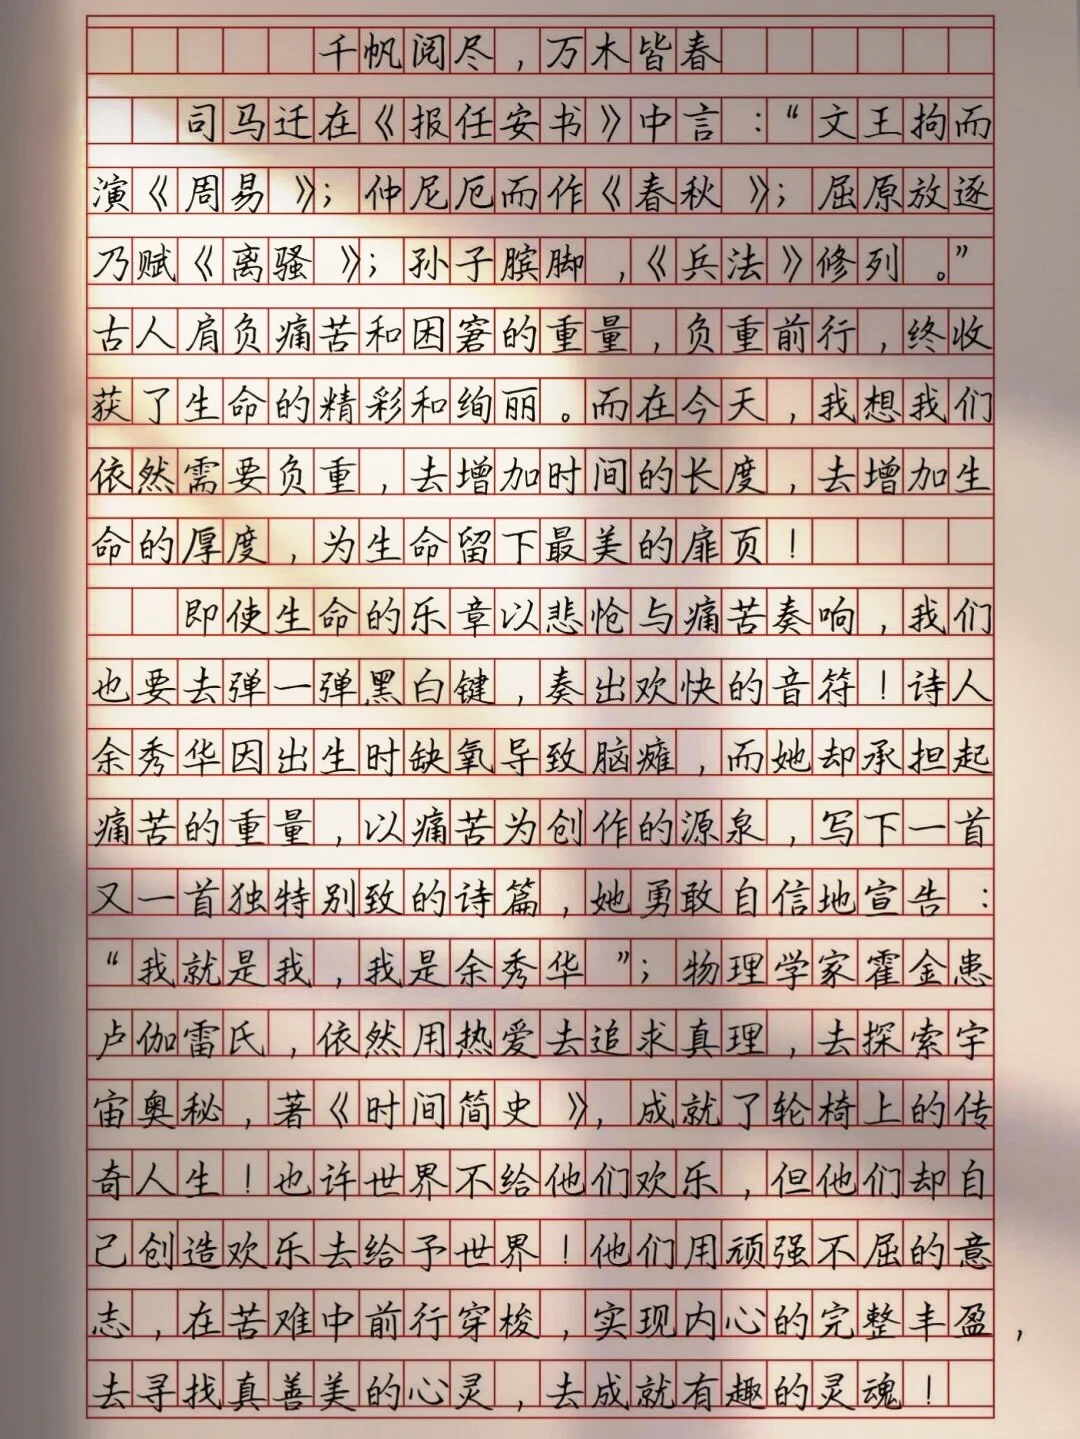 千帆阅尽，万木皆春
司马迁在《报任安书》中言：“文王拘而
演《周易》；仲尼厄而作《春秋》；屈原放逐
乃赋《离骚》；孙子膑脚，《兵法》修列。”
古人肩负痛苦和困窘的重量，负重前行，终收
获了生命的精彩和绚丽。而在今天，我想我们
依然需要负重，去增加时间的长度，去增加生
命的厚度，为生命留下最美的扉页！
即使生命的乐章以悲怆与痛苦奏响，我们
也要去弹一弹黑白键，奏出欢快的音符！诗人
余秀华因出生时缺氧导致脑瘫，而她却承担起
痛苦的重量，以痛苦为创作的源泉，写下一首
又一首独特别致的诗篇，她勇敢自信地宣告：
“我就是我，我是余秀华”；物理学家霍金患
卢伽雷氏，依然用热爱去追求真理，去探索宇
宙奥秘，著《时间简史》，成就了轮椅上的传
奇人生！也许世界不给他们欢乐，但他们却自
己创造欢乐去给予世界！他们用顽强不屈的意
志，在苦难中前行穿梭，实现内心的完整丰盈，
去寻找真善美的心灵，去成就有趣的灵魂！